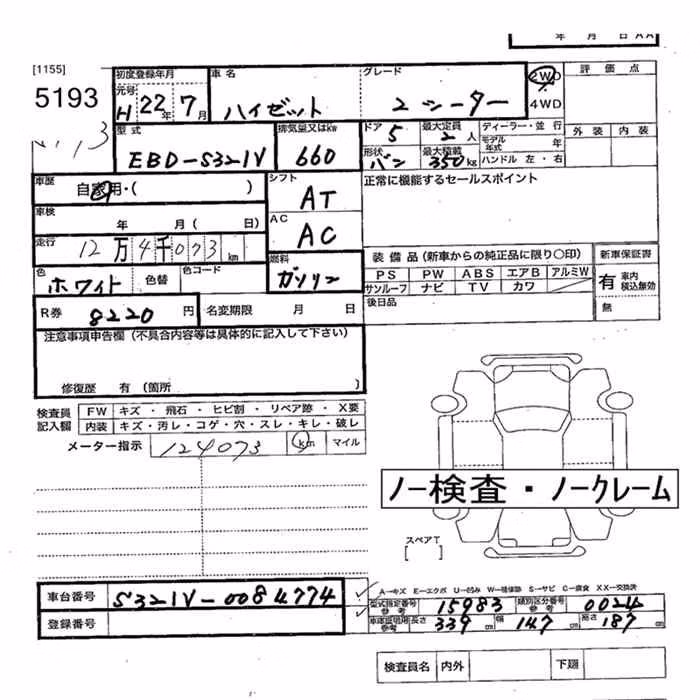 年 月 日 AA
[1155]
5193
初度登録年月 車名 グレード 2WD 評価点
元号
H 22年 7月 ハイゼット 2シーター 4WD
外装 内装
型式 排気量又はkw ドア 最大定員 ディーラー・並行
EBD-S321V 660 5 2人 モデル年式 年
形状 バン 最大積載 350kg ハンドル 左・右
車歴 自家用・( ) シフト AT 正常に機能するセールスポイント
車検 年 月( 日) AC AC
走行 12万4千073 km
燃料 ガソリン
装備品(新車からの純正品に限り〇印) 新車保証書
色 ホワイト 色替 色コード
PS PW ABS エアB アルミW 有 車内積込無効
サンルーフ ナビ TV カワ
後日品 無
R券 8220 円 名変期限 月 日
注意事項申告欄(不具合内容等は具体的に記入して下さい)
修復歴 有 (箇所 )
検査員記入欄 FW キズ・飛石・ヒビ割・リペア跡・X要
内装 キズ・汚レ・コゲ・穴・スレ・キレ・破レ
メーター指示 124073 km マイル
ノー検査・ノークレーム
スペアT
[ ]
A→キズ E→エクボ U→凹み W→補修跡 S→サビ C→腐食 XX→交換済
車台番号 S321V-0084774
型式指定番号 参考 15983 類別区分番号 参考 0024
登録番号
車庫証明用 参考 長さ 339cm 幅 147cm 高さ 187cm
検査員名 内外 下廻